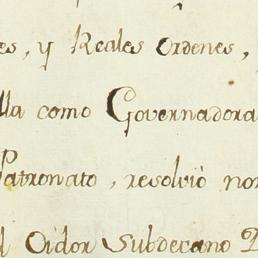 es, y Reales Ordenes,
lla como Governadora
Patronato, resolviò no
l Oidor Subdecano D